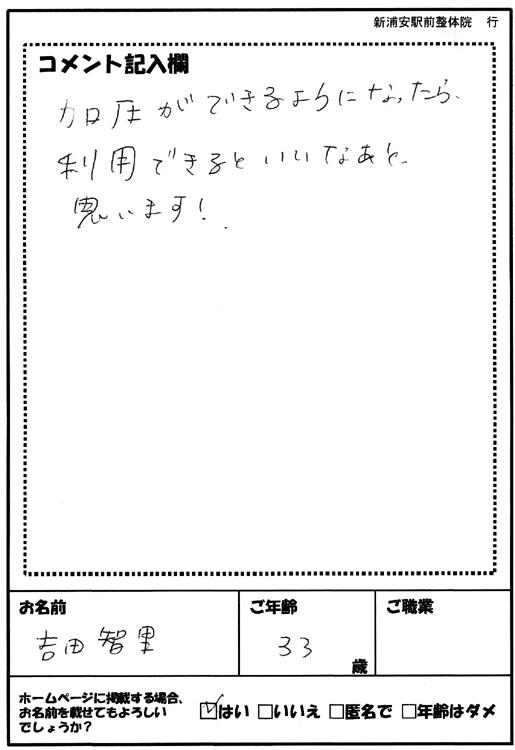 新浦安駅前整体院 行
コメント記入欄
加圧ができるようになったら、
利用できるといいなあと、
思います！
お名前
ご年齢
ご職業
吉田智里
33
歳
ホームページに掲載する場合、
お名前を載せてもよろしい
でしょうか？
☑はい □いいえ □匿名で □年齢はダメ